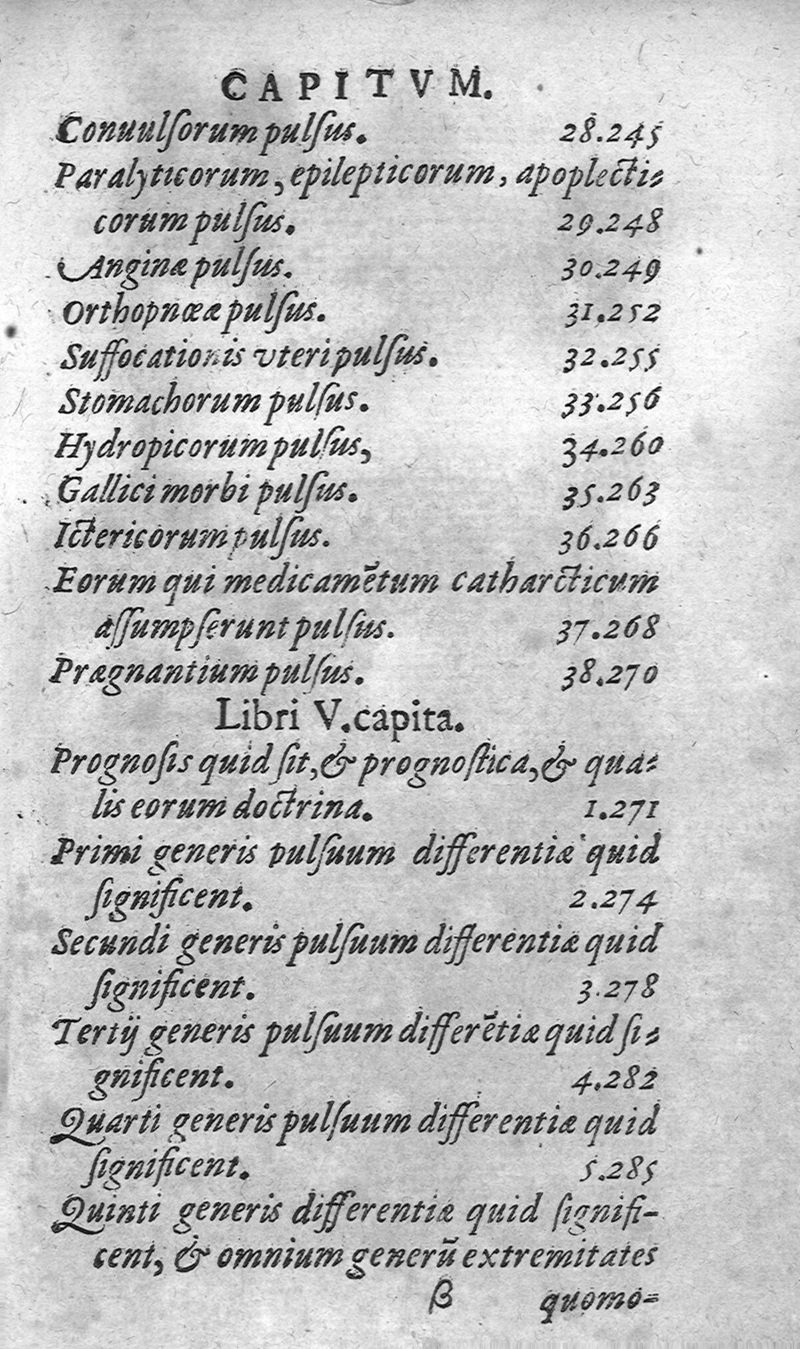 CAPITVM.
Conuulſorum pulſus. 28.245
Paralyticorum, epilepticorum, apoplecti-
corum pulſus. 29.248
Anginæ pulſus. 30.249
Orthopnœæ pulſus. 31.252
Suffocationis vteri pulſus. 32.255
Stomachorum pulſus. 33.256
Hydropicorum pulſus, 34.260
Gallici morbi pulſus. 35.263
Ictericorum pulſus. 36.266
Eorum qui medicamētum catharcticum
aſſumpſerunt pulſus. 37.268
Prægnantium pulſus. 38.270
Libri V. capita.
Prognoſis quid ſit, & prognoſtica, & qua-
lis eorum doctrina. 1.271
Primi generis pulſuum differentiæ quid
ſignificent. 2.274
Secundi generis pulſuum differentiæ quid
ſignificent. 3.278
Tertij generis pulſuum differētiæ quid ſi-
gnificent. 4.282
Quarti generis pulſuum differentiæ quid
ſignificent. 5.285
Quinti generis differentiæ quid ſignifi-
cent, & omnium generū extremitates
β quomo-